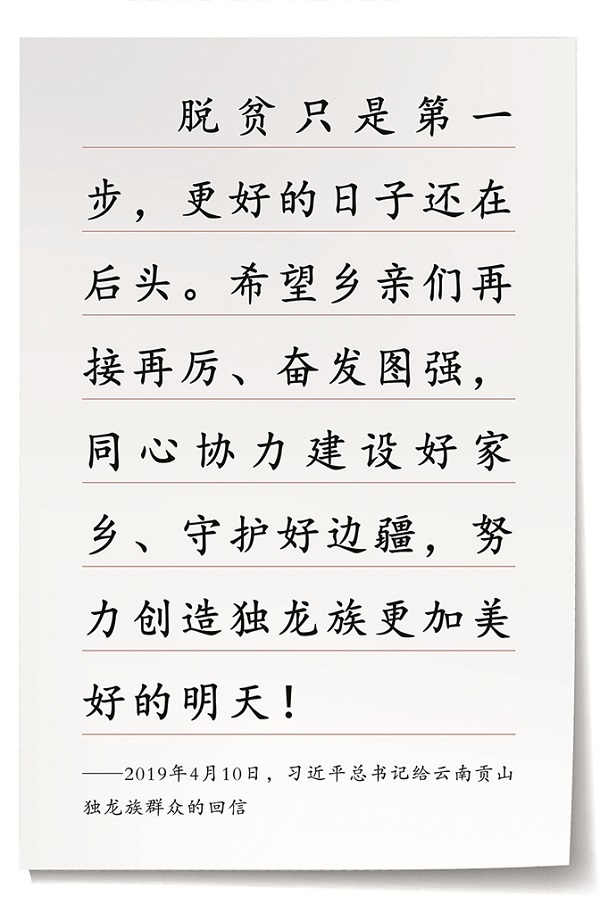 脱贫只是第一
步，更好的日子还在
后头。希望乡亲们再
接再厉、奋发图强，
同心协力建设好家
乡、守护好边疆，努
力创造独龙族更加美
好的明天！
——2019年4月10日，习近平总书记给云南贡山
独龙族群众的回信